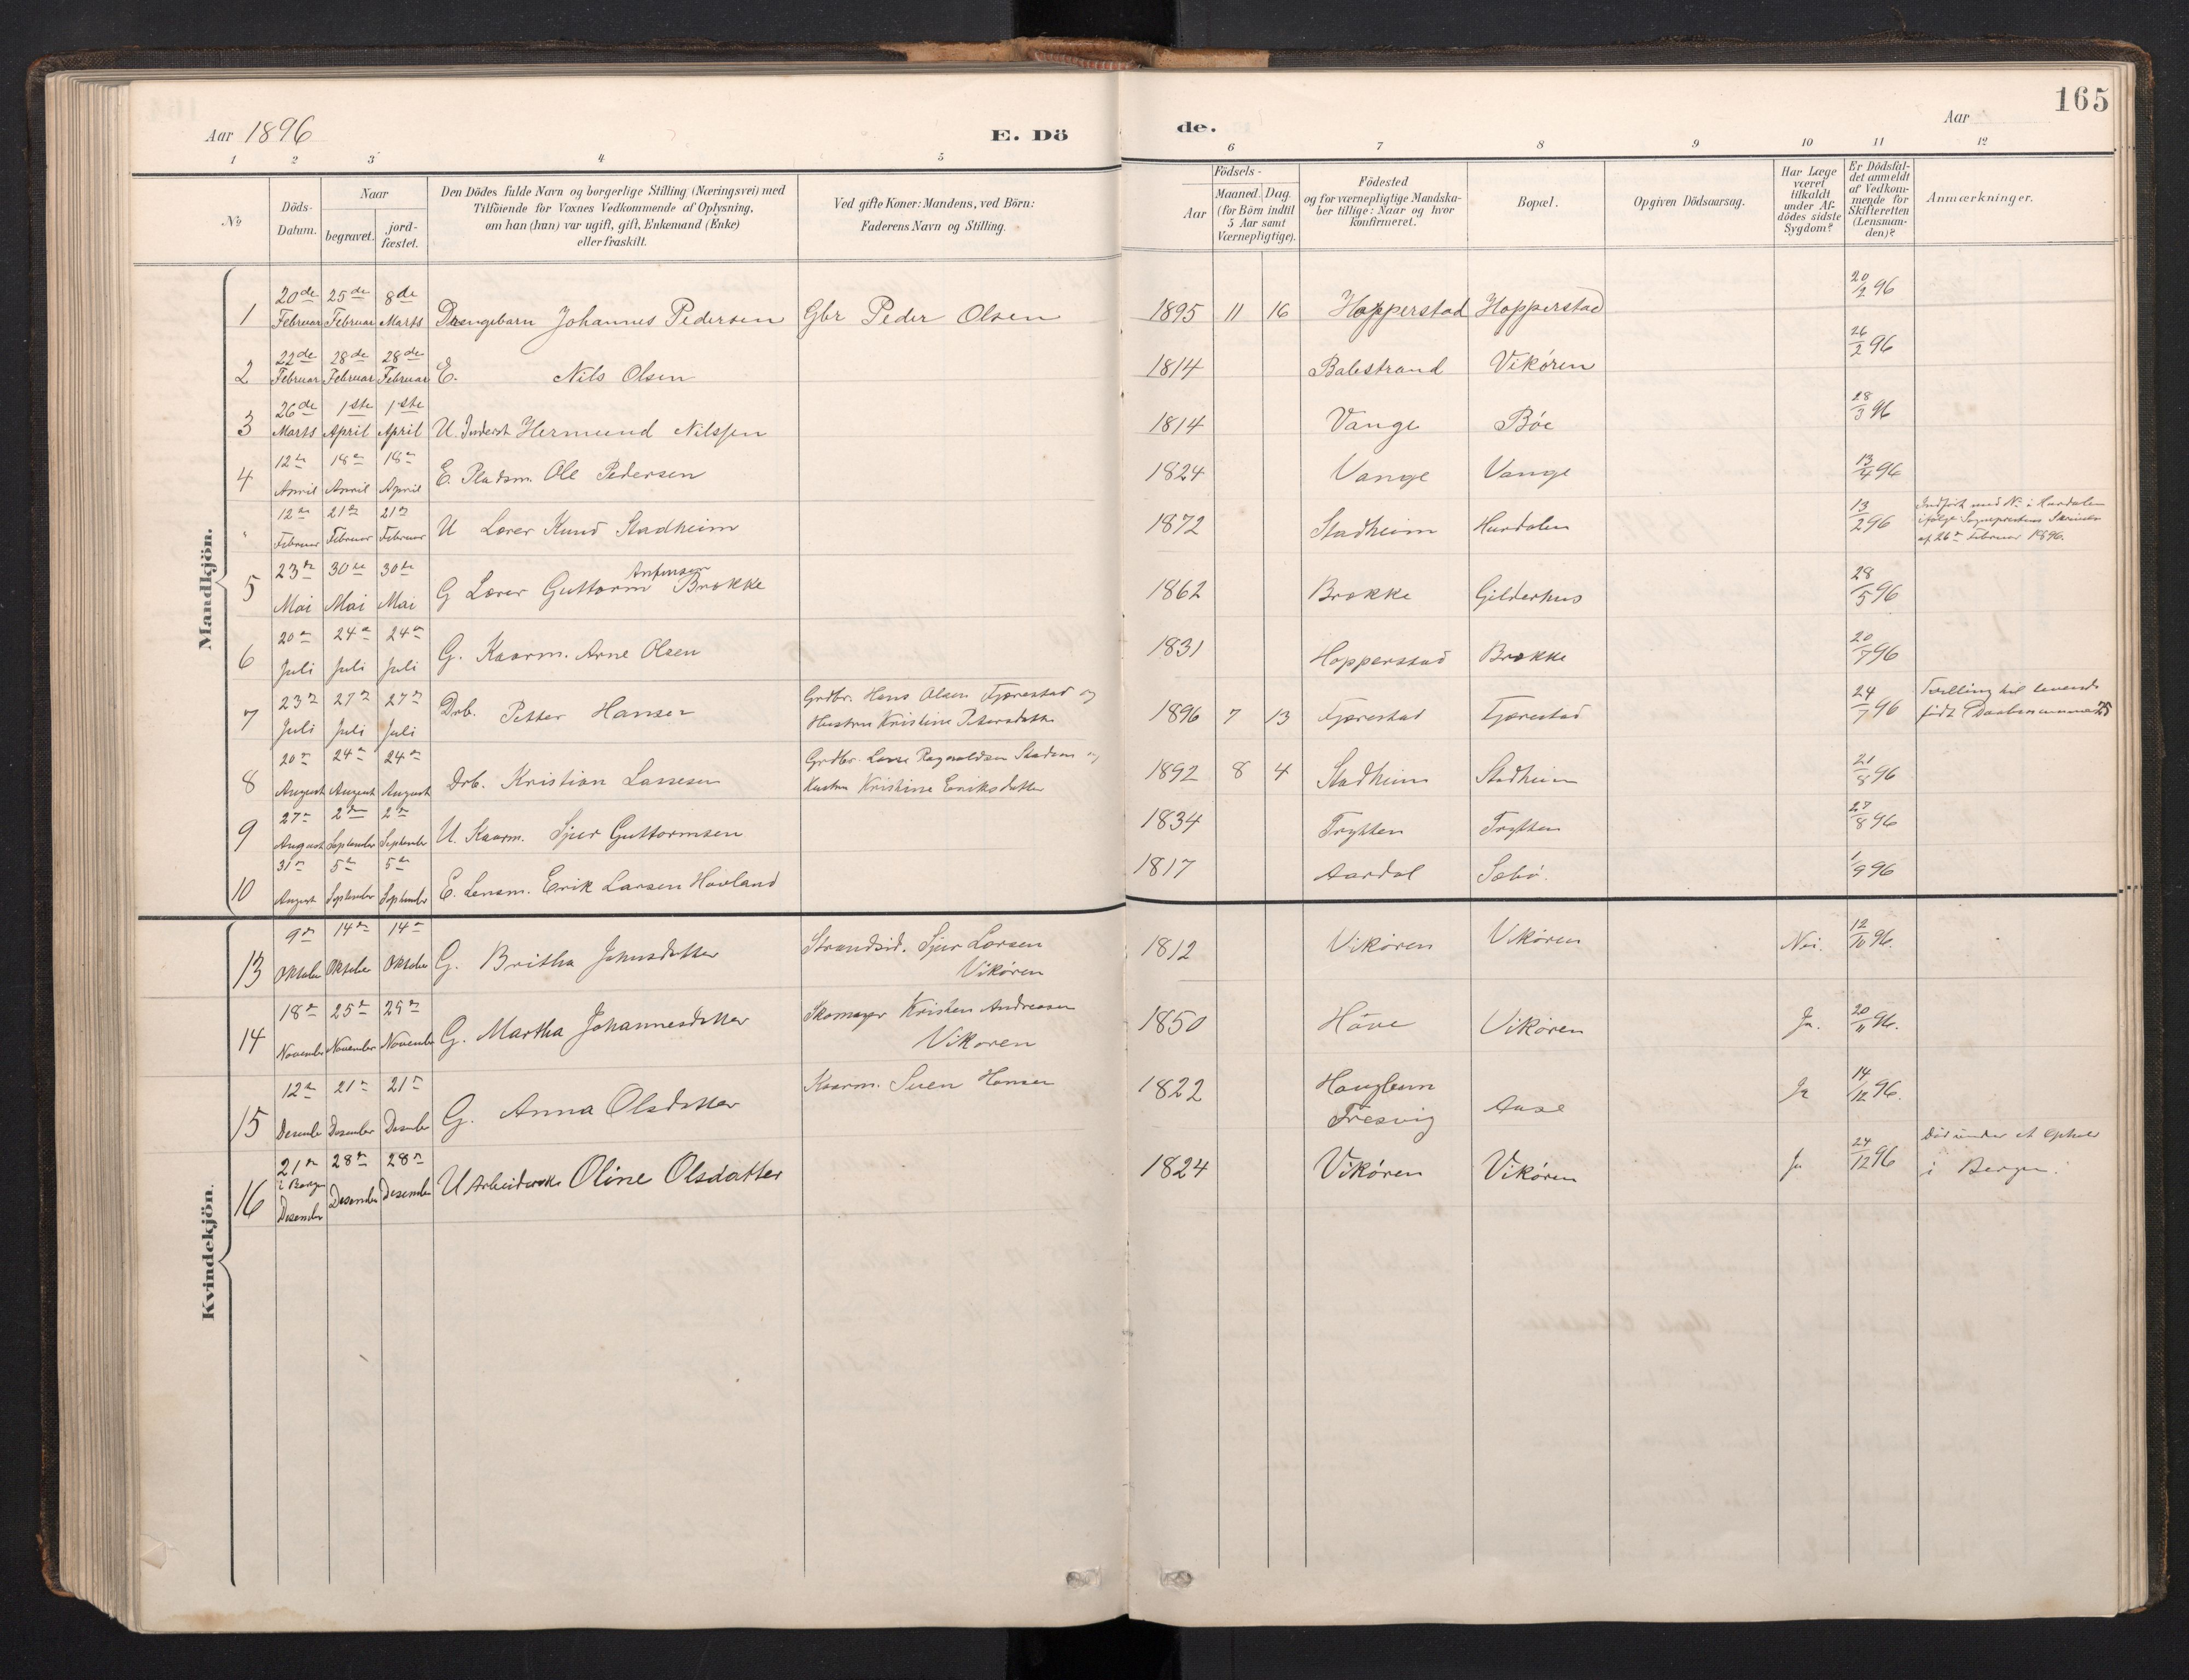 165
Aar 1896
E. Dö
de.
Aar
1 2 3 4 5 6 7 8 9 10 11 12
No
Döds-
Datum.
Naar
begravet.
jord-
fæstet.
Den Dödes fulde Navn og borgerlige Stilling (Næringsvei) med
Tilföiende for Voxnes Vedkommende af Oplysning,
om han (hun) var ugift, gift, Enkemand (Enke)
eller fraskilt.
Ved gifte Koner: Mandens, ved Börn:
Faderens Navn og Stilling.
Födsels-
Aar
Maaned. Dag.
(for Börn indtil
5 Aar samt
Værnepligtige).
Födested
og for værnepligtige Mandska-
ber tillige: Naar og hvor
konfirmeret.
Bopæl.
Opgiven Dödsaarsag.
Har Læge
været
tilkaldt
under Af-
dödes sidste
Sygdom?
Er Dödsfal-
det anmeldt
af Vedkom-
mende for
Skifteretten
(Lensman-
den)?
Anmærkninger.
Mandkjön.
20de 25de 8de 20/2 96
1 Februar Februar Marts Drengebarn Johannes Pedersen Gbr Peder Olsen 1895 11 16 Hopperstad Hopperstad
22de 28de 28de 26/2 96
2 Februar Februar Februar E. Nils Olsen 1814 Balestrand Vikøren
26de 1ste 1ste 28/3 96
3 Marts April April U. Inderst Hermund Nilssen 1814 Vange Böe
12te 18de 18de 13/4 96
4 April April April E. Pladsm. Ole Pedersen 1824 Vange Vange
12te 21de 21de 13/2 96 Indført med No i Hurdalen
" Februar Februar Februar U Lærer Knud Stadheim 1872 Stadheim Hurdalen ifølge Sogneprestens
af 26de Februar 1896.
23de 30te 30te Anfinsen 28/5 96
5 Mai Mai Mai G Lærer Guttorm Brække 1862 Brække Gilderhus
20de 24de 24de 20/7 96
6 Juli Juli Juli G. Kaarm. Arne Olsen 1831 Hopperstad Brække
23de 27de 27de Grdbr. Hans Olsen Tjærestad og 24/7 96 Tvilling til levende
7 Juli Juli Juli Drb. Petter Hansen Hustru Kristine Petersdatter 1896 7 13 Tjærestad Tjærestad født 25
20de 24de 24de Grdbr. Lasse Ragnvaldsen Stadheim og 21/8 96
8 August August August Drb. Kristian Lassesen Hustru Kristine Eriksdatter 1892 8 4 Stadheim Stadheim
27de 2den 2den 27/8 96
9 August September September U. Kaarm. Sjur Guttormsen 1834 Trytten Trytten
31te 5te 5te 1/9 96
10 August September September E. Lensm. Erik Larsen Hovland 1817 Aardal Sæbø.
Kvindekjön.
9de 14de 14de Strandsid. Sjur Larsen 12/10 96.
13 Oktober Oktober Oktober G. Britha Johnsdatter Vikøren 1812 Vikøren Vikøren Nei.
18de 25de 25de Skomager Kristen Andreasen 20/11 96.
14 November November November G. Martha Johannesdatter Vikøren 1850 Hove Vikøren Ja.
12te 21de 21de Kaarm. Sven Hansen Hauglum 14/12 96.
15 Desember Desember Desember G. Anna Olsdatter 1822 Fresvig Aase Ja
21de 28de 28de 24/12 96 Død under et Ophold
i Bergen
16 Desember Desember Desember U Arbeiderske Oline Olsdatter 1824 Vikøren Vikøren Ja i Bergen.